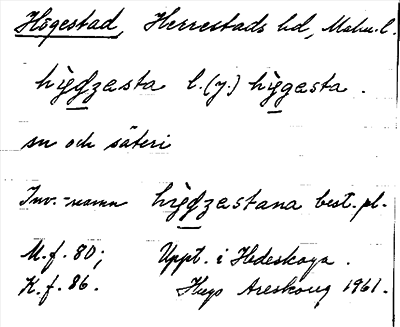 Högestad, Herrestads hd, Malm. l.
hìg̠d̠zesta l. (y.) hìg̠g̠esta.
sn och säteri
Inv.-namn hìg̠d̠zestana best. pl.
M. f. 80; Uppt. i Hedeskoga.
K. f. 86. Hugo Areskoug 1961.